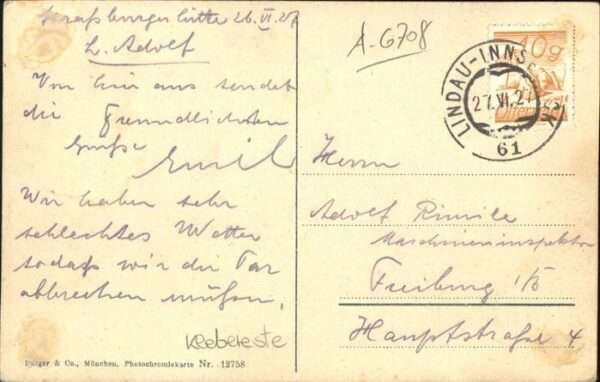 Straßburgerhütte 26.VI.27
L. Adolf
Von hier aus sendet
die freundlichsten
Grüße Emil
Wir haben sehr
schlechtes Wetter
sodaß wir die Tour
abbrechen müßen.
Klebereste
Burger & Co., München, Photochromiekarte Nr. 12758
A-6708
10g
LINDAU-INNSBRUCK
27.VI.27
61
Herrn
Adolf
Maschineninspektor
Freiburg i/B
Hauptstraße 4